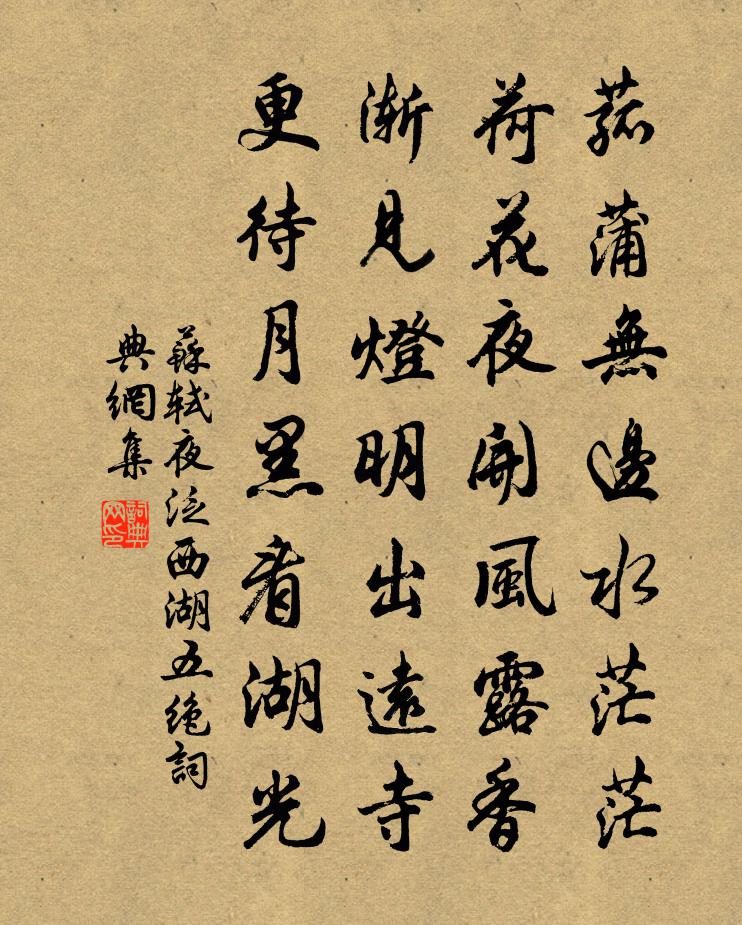 菰蒲無邊水茫茫
荷花夜開風露香
漸見燈明出遠寺
更待月黑看湖光
蘇軾夜泛西湖五絕詞
典網集
詞典
网印